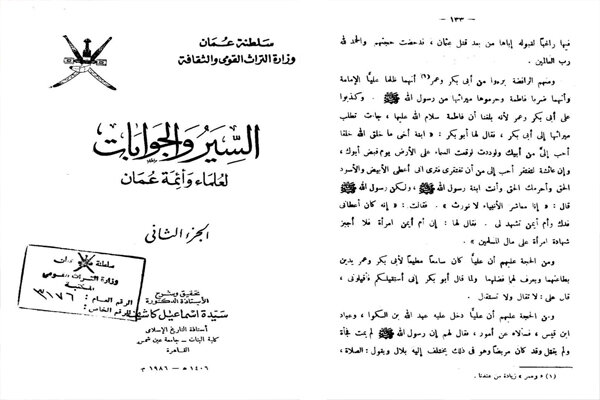 سلطنة عمان
وزارة التراث القومى والثقافة
السير والجوابات
لعلماء وأئمة عمان
الجزء الثانى
سلطنة عمان
وزارة التراث القومى
المكتبة
الرقم العام : ٣١٧٦
الرقم الخاص :
تحقيق وشرح
الأستاذة الدكتورة
سيدة اسماعيل كاشف
أستاذة التاريخ الإسلامى
كلية البنات ـ جامعة عين شمس
القاهرة
١٤٠٦ هـ ـ ١٩٨٦ م
ـ ١٣٣ ـ
فيها راغبا لقبوله إياها من بعد قتل عثمان ، فدحضت حجتهم والحمد لله
رب العالمين .
ومنهم الرافضة برءوا من أبى بكر وعمر(١) أنهما ظلما عليًا الإمامة
وأنهما ضربا فاطمة وحرموها ميراثها من رسول الله ﷺ . وكذبوا
على أبى بكر وعمر لأنه بلغنا أن فاطمة سلام الله عليها ، جاءت تطلب
ميراثها إلى أبى بكر ، فقال لها أبو بكر : « ابنة أخى ما خلق الله خلقا
أحب إلىّ من أبيك ولوددت لوقعت السماء على الأرض يوم قبض أبوك ،
وإن عائشة لتفتقر أحب إلى من أن تفتقرى ترى انى أعطى الأبيض والأسود
الحق وأحرمك الحق وأنت ابنة رسول الله ﷺ ، ولكن رسول الله ﷺ
قال : « إنا معاشر الأنبياء لا نورث » . فقالت : « إنه كان أعطانى
فدك وأم أيمن تشهد لى . فقال لها : إن أم أيمن امرأة فلا أجيز
شهادة امرأة على مال المسلمين » .
ومن الحجة عليهم أن عليًا كان سامعا مطيعا لأبى بكر وعمر يدين
بطاعتهما ويعرف لهما فضلهما ولما قال أبو بكر إنى أستقيلكم فأقيلونى ،
قال على : لا تقال ولا نستقال .
ومن الحجة عليهم أن عليًا دخل عليه عبد الله بن الكوا ، وعباد
ابن قيس ، فسألاه عن أمور ، فقال لهم إن رسول الله ﷺ لم يمت فجأة
ولم يقتل وقد كان مريضا وهو فى ذلك يختلف إليه بلال ويقول : الصلاة ،
(١) « وعمر » زيادة من عندنا .